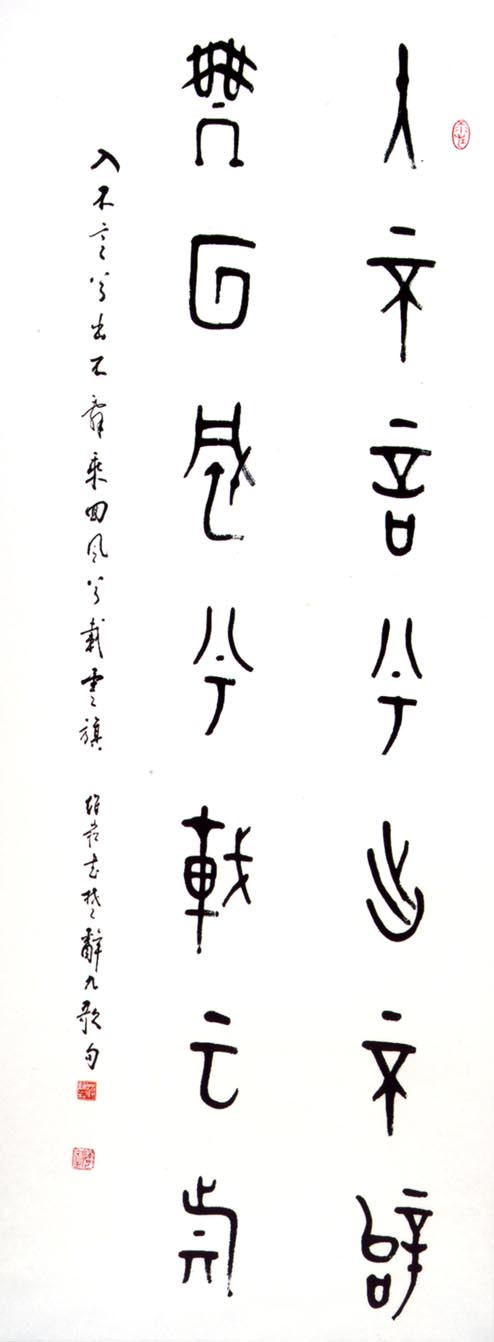 入不言兮出不辭
乘回風兮載雲旗
入不言兮出不辞乘回風兮載雲旗 楚辭九歌句